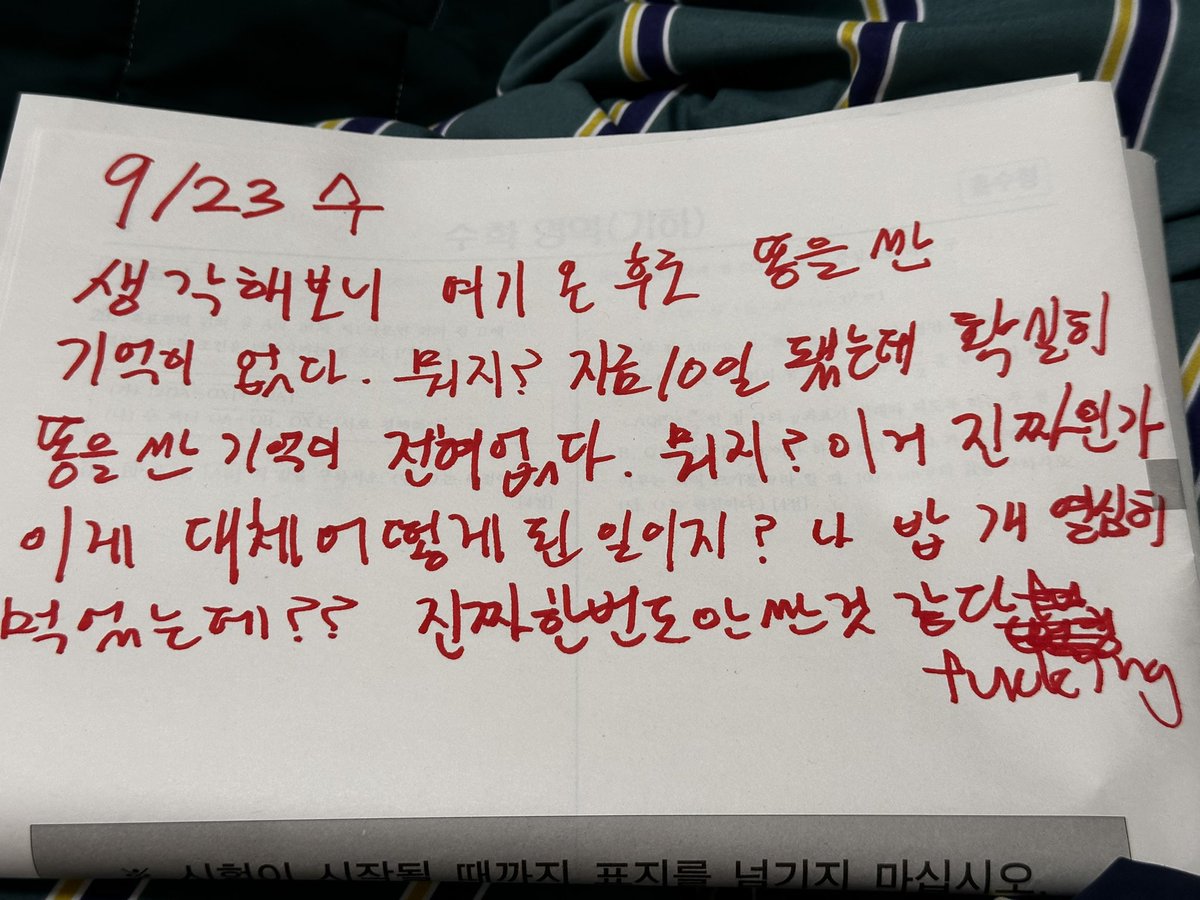 9/23 수
생각해보니 여기 온 후로 똥을 싼
기억이 없다. 뭐지? 지금 10일 됐는데 확실히
똥을 싼 기억이 전혀없다. 뭐지? 이거 진짜인가
이게 대체 어떻게 된 일이지? 나 밥 개 열심히
먹었는데?? 진짜 한번도 안 싼것 같다
fucking
수학 영역(기하)
홀수형
※ 시험이 시작될 때까지 표지를 넘기지 마십시오.